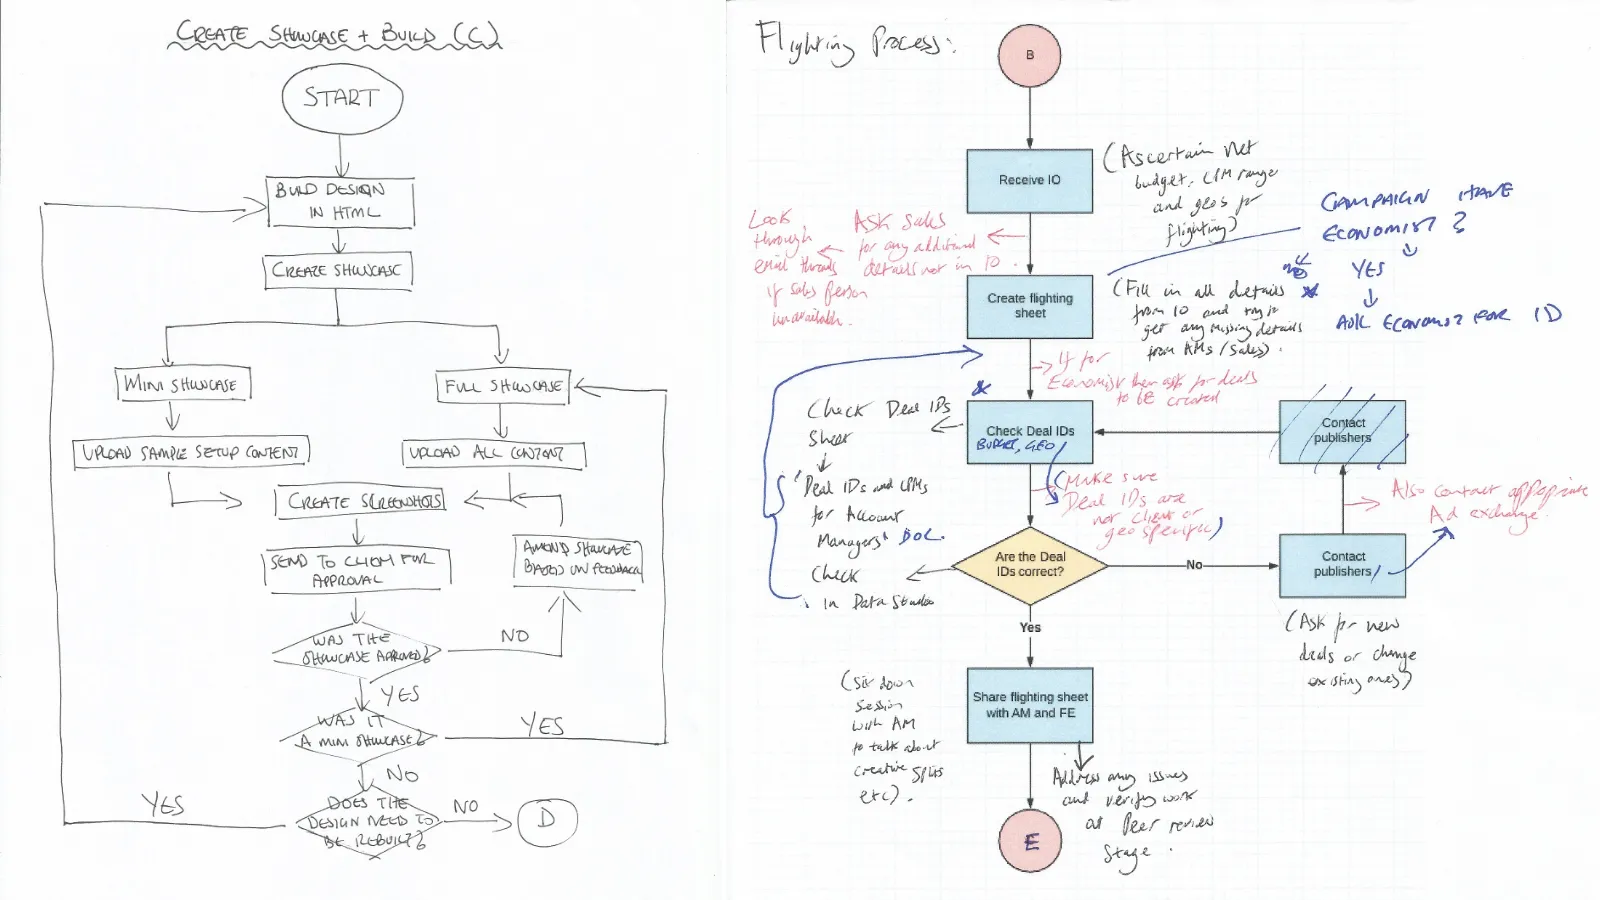 CREATE SHOWCASE + BUILD (C)
START
BUILD DESIGN
IN HTML
CREATE SHOWCASE
MINI SHOWCASE
FULL SHOWCASE
UPLOAD SAMPLE SETUP CONTENT
UPLOAD ALL CONTENT
CREATE SCREENSHOTS
SEND TO CLIENT FOR
APPROVAL
AMEND SHOWCASE
BASED ON FEEDBACK
WAS THE
SHOWCASE APPROVED?
NO
YES
WAS IT
A MINI SHOWCASE?
YES
NO
DOES THE
DESIGN NEED TO
BE REBUILT?
YES
NO
D
Flighting Process:
B
Receive IO
(Ascertain Net
budget, CPM range
and geos for
flighting)
Look
through
email threads
if sales person
unavailable.
ASK Sales
for any additional
details not in IO.
CAMPAIGN HAVE
ECONOMIST?
NO
YES
ASK ECONOMIST FOR ID
Create flighting
sheet
(Fill in all details
from IO and try to
get any missing details
from AMs/Sales).
If for
Economist then ask for deals
to be created
Check Deal IDs
BUDGET, GEO
Check Deal IDs
Sheet
'Deal IDs and CPMs
for Account
Managers' DOC.
Check
in Data Studio
(Make sure
Deal IDs are
not client or
geo specific)
Contact
publishers
Also contact appropriate
Ad exchange.
Are the Deal
IDs correct?
No
Contact
publishers
(Ask for new
deals or change
existing ones)
Yes
Share flighting sheet
with AM and FE
(Sit down
session
with AM
to talk about
creative splits
etc).
Address any issues
and verify work
at Peer review
Stage.
E